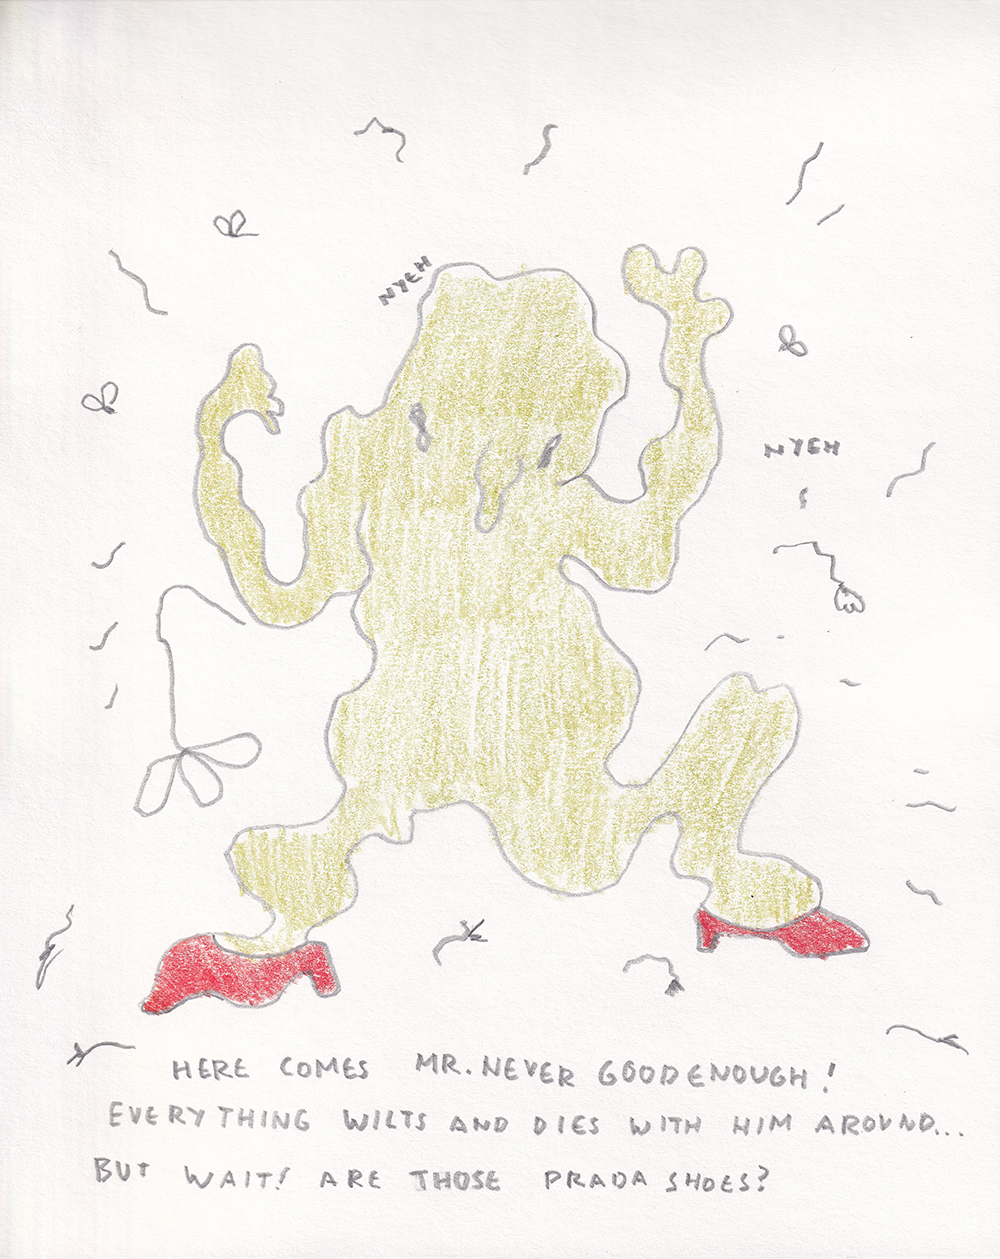 NYEH
NYEH
HERE COMES MR. NEVER GOODENOUGH!
EVERYTHING WILTS AND DIES WITH HIM AROUND...
BUT WAIT! ARE THOSE PRADA SHOES?